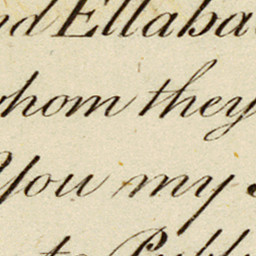 nd Ellaba
whom they
You my
to Publ